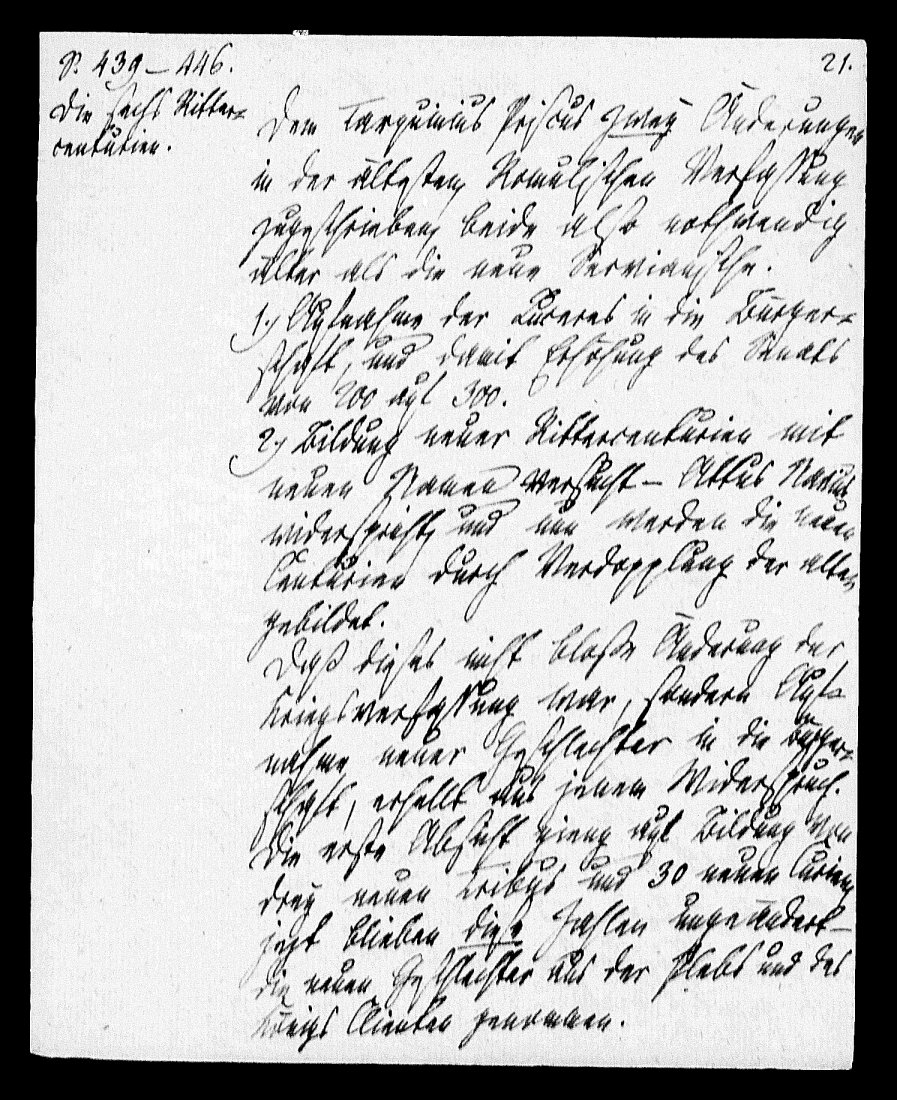 S. 439–446.
21.
die sechs Ritter-
centurien.
Dem Tarquinius Priscus zwey Änderungen
in der ältesten Romulischen Verfassung
zugeschrieben, beide also nothwendig
älter als die neue Servianische.
1.) Aufnahme der Luceres in die Bürger-
schaft, und damit Erhöhung des Senats
von 200 auf 300.
2.) Bildung neuer Rittercenturien mit
neuen Namen versucht – Attus Navius
widerspricht, und nun werden die neuen
Centurien durch Verdopplung der alten
gebildet.
Daß dieses nicht bloße Änderung der
Kriegsverfassung war, sondern Auf-
nahme neuer Geschlechter in die Bürger-
schaft, erhellt aus jenem Widerspruch.
Die erste Absicht gieng auf Bildung von
drey neuen Tribus und 30 neuen Curien,
jezt blieben diese Zahlen ungeändert –
die neuen Geschlechter aus der Plebs und des
Königs Clienten genommen.